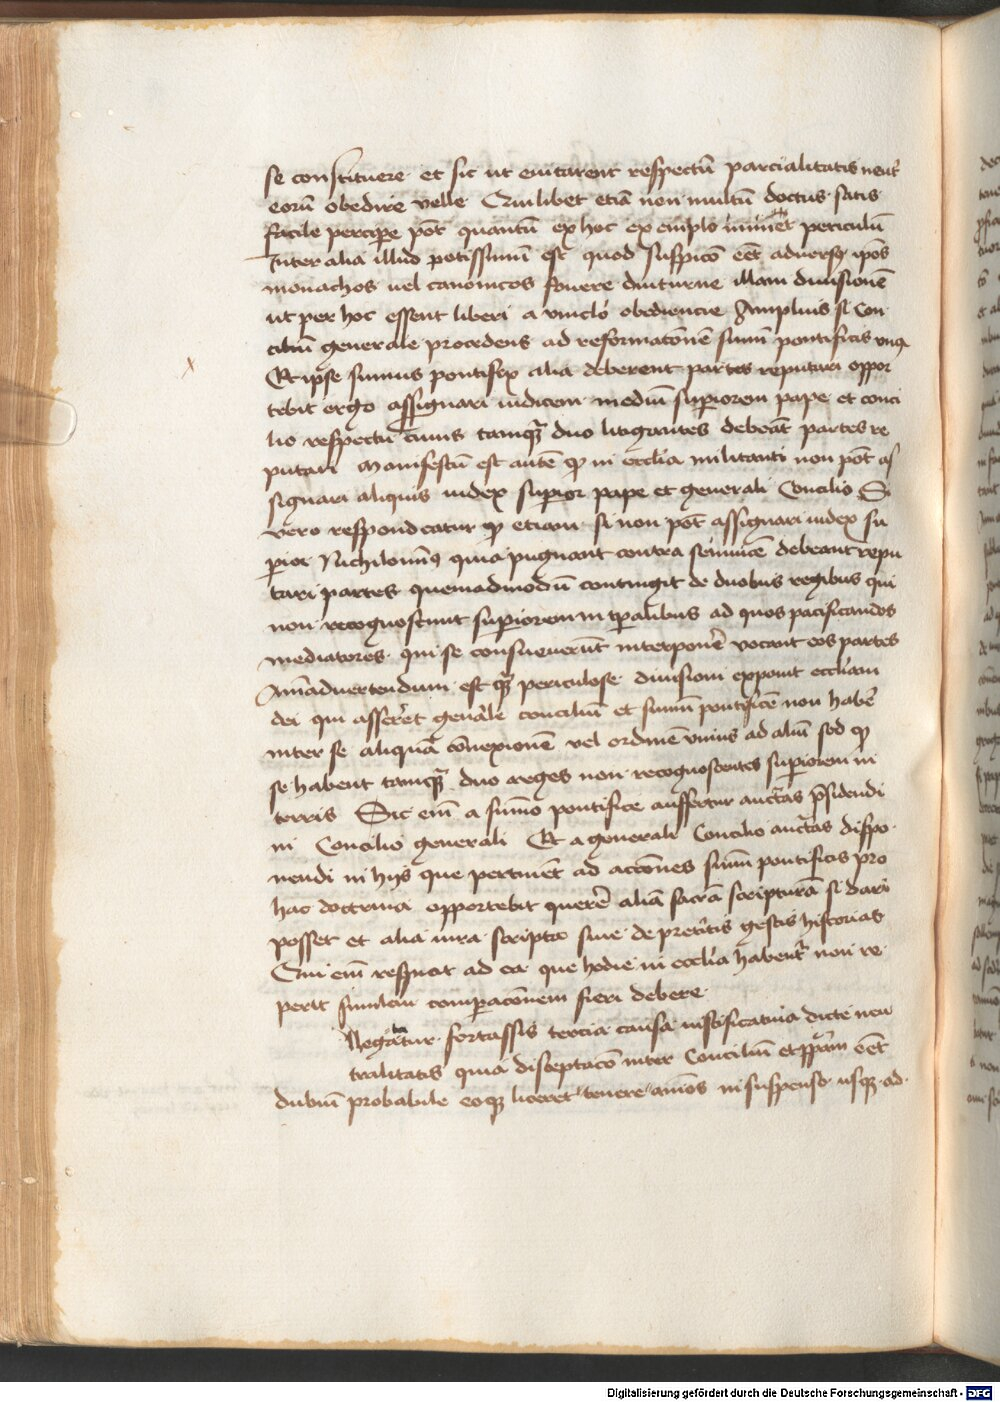 se constituere et sic ut euitarent respectũ parcialitatis neut̃
eorũ obedire velle Quilibet etiã non multũ doctus satis
facile percipe põt quantũ ex hoc exemplo iminet periculũ
Inter alia illud potissimũ est quod suspicõ eẽt aduersꝯ ip̃os
monachos uel canonicos fouere diuturne illam diuisionẽ
ut per hoc essent liberi a vinclo obediencie Amplius si Con
ciliũ generale procedens ad reformacõnẽ sum̃i pontificis vnꝯ
Et ip̃se sum̃us pontifex alia deberent partes reputari oppor
tebit ergo assignari iudicem mediũ superiorem pape et conci
lio respectu cuius tamqͣ̃ duo litigantes debeãt partes re
putari Manifestũ est autẽ ꝙ in eccl̃ia militanti non põt as
signari aliquis iudex superior pape et generali Concilio Si
vero respondeatur ꝙ etiam si non põt assignari iudex su
perior Nichilominꝯ quia pugnant contra seinuicẽ debeant repu
tari partes quemadmodũ contingit de duobus regibus qui
non recognoscunt superiorem in tp̃alibus ad quos pacificandos
mediatores qui se consueuerũt interponẽ vocant eos partes
Aĩaduertendum est qͣ̃ periculose diuisioni exponit eccl̃iam
dei qui asserẽt genãle conciliũ et sum̃ũ pontificẽ non habẽ
inter se aliquã conexionẽ vel ordinẽ vnius ad aliũ sed ꝙ
se habent tamqͣ̃ duo reges non recognoscentes superiorem in
terris Sic em̃ a sum̃o pontifice auffertur auctãs p̃sidendi
in Concilio generali Et a generali Concilio auctãs dispo
nendi in hijs que pertinẽt ad acciones sum̃i pontificis pro
hac doctrina opportebit querẽ aliã sacrã scripturã si dari
posset et alia iura scripta siue de pretitis gestis historias
Qui em̃ respicit ad ea que hodie in eccl̃ia habent̃ non re
perit similem comparacõnem fieri debere
Negabatur fortassis tercia causa iustificatiua dicte neu
tralitatis quia disceptacõ inter Conciliũ et pp̃am eẽt
dubiũ probabile eoqꝫ liceret tenere anĩos in suspenso usqꝫ ad